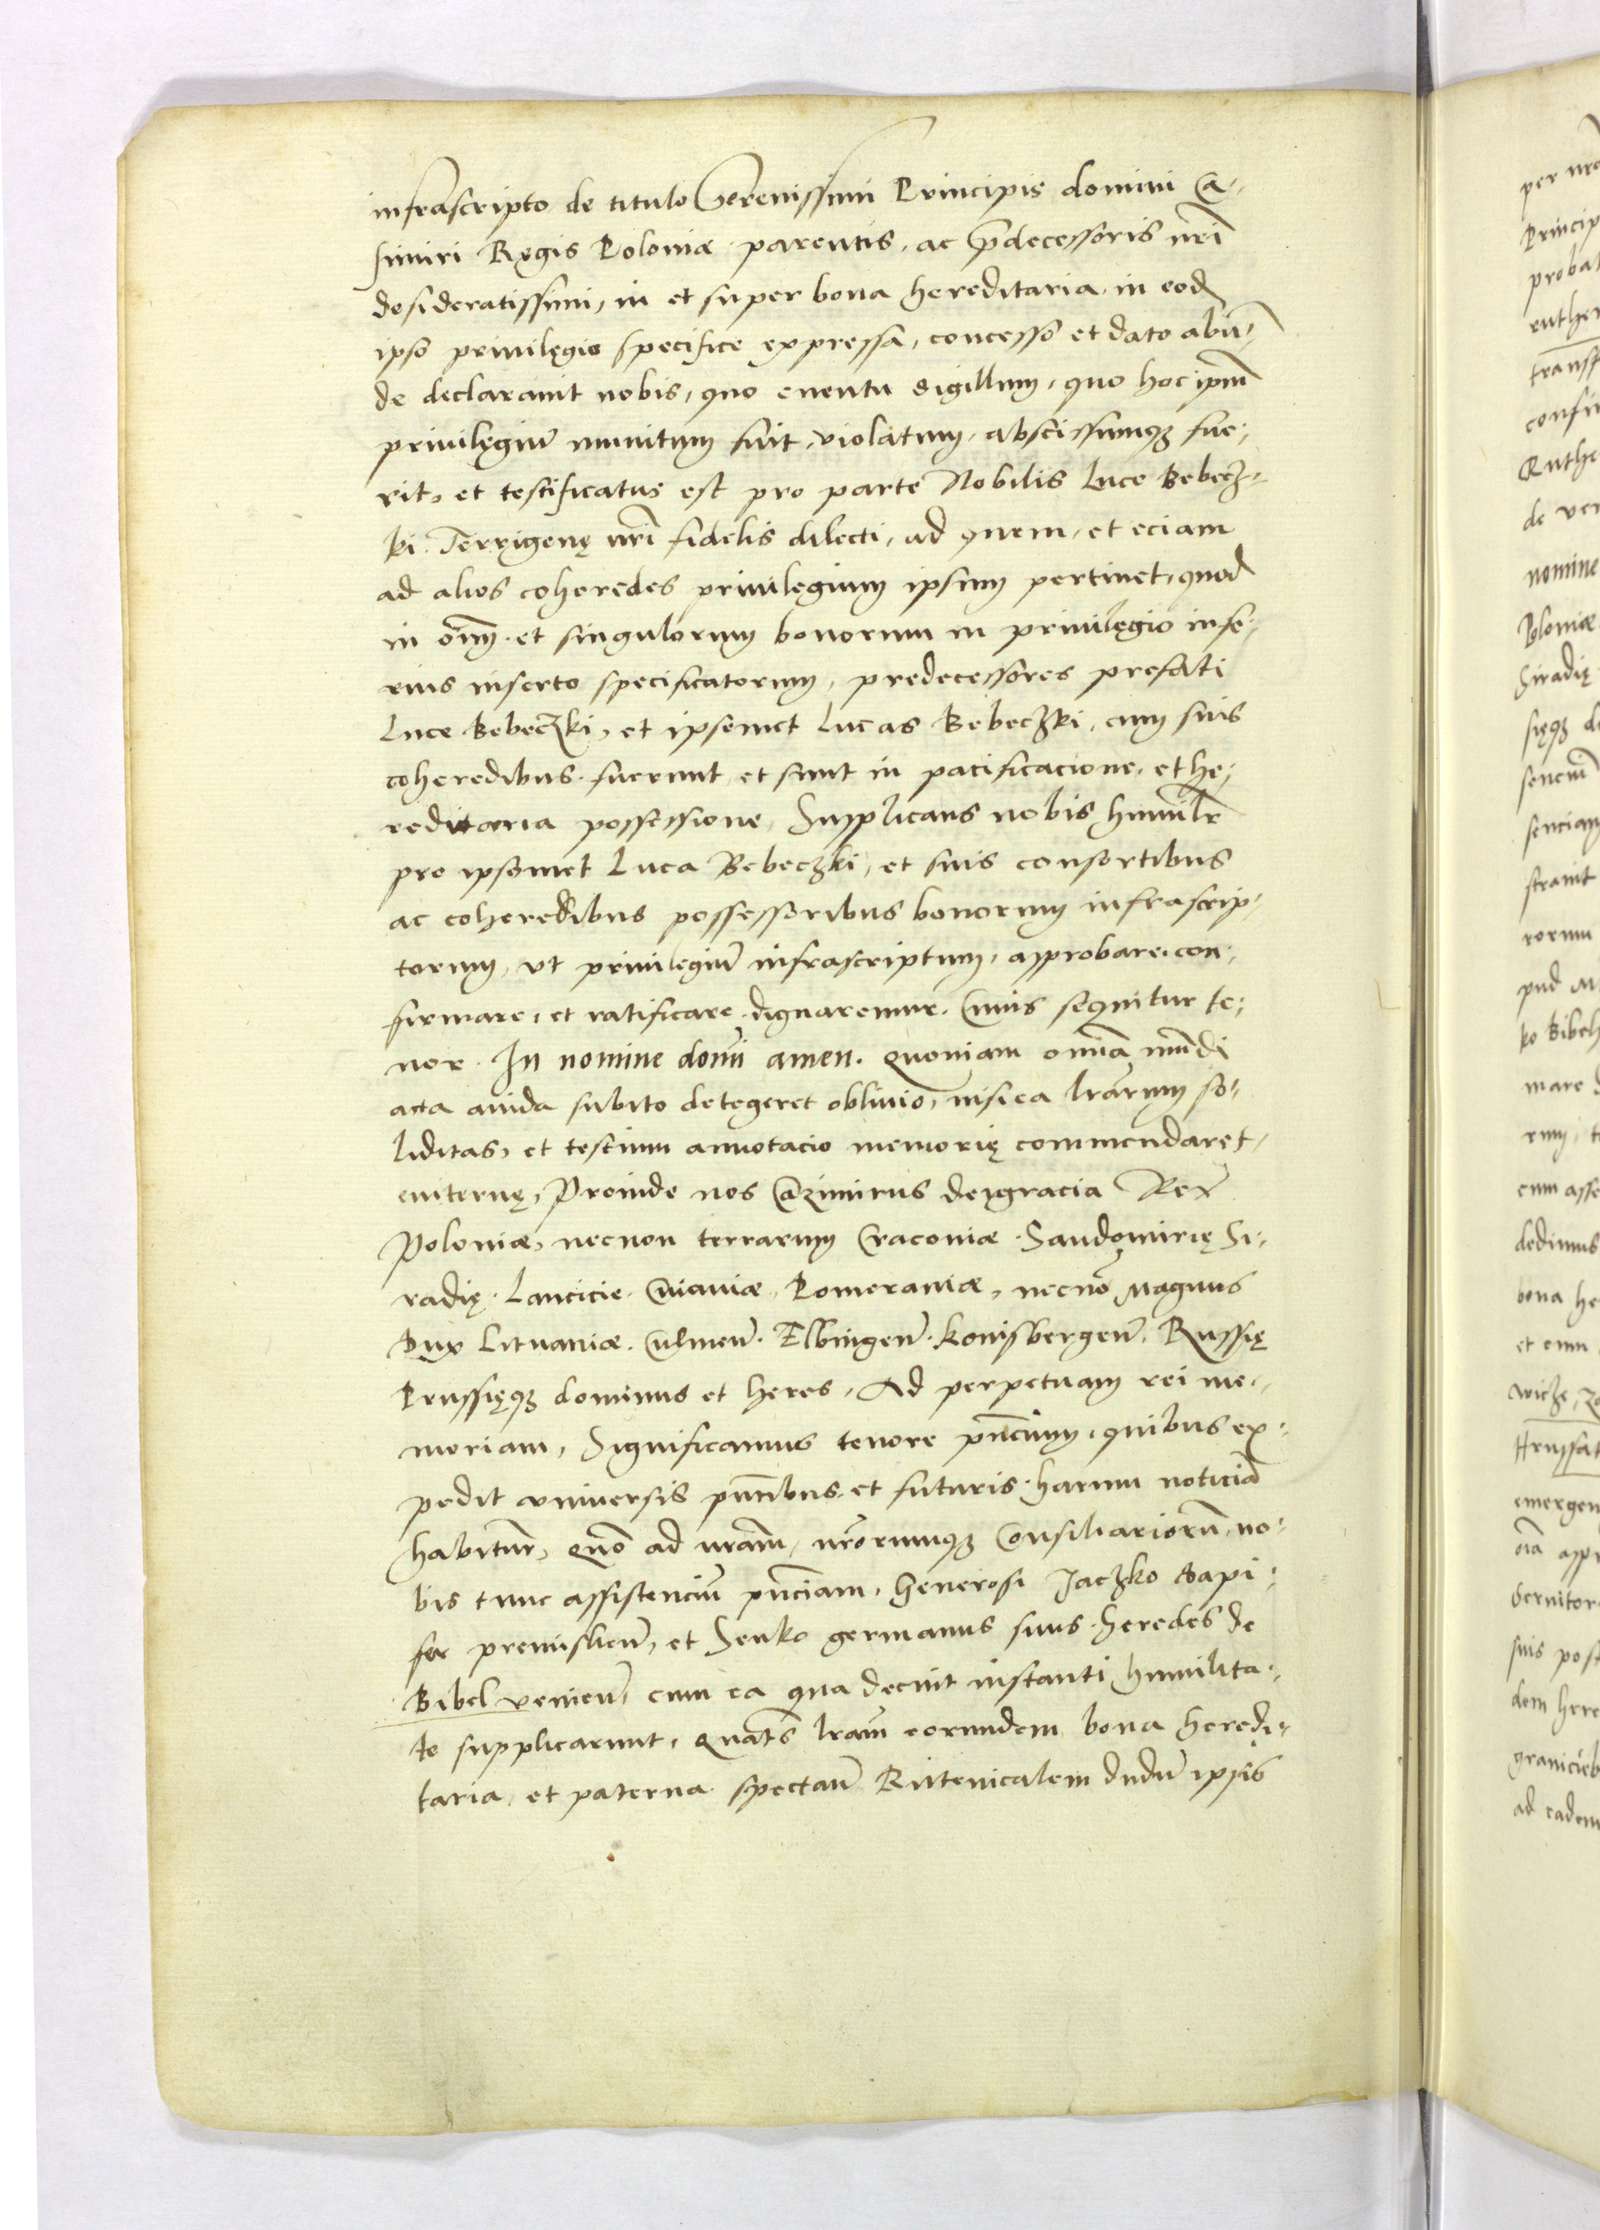 infrascripto de titulo Serenissimi Principis domini Ca-
simiri Regis Poloniæ parentis, ac p̄decessoris nr̄i
desideratissimi, in et super bona hereditaria in eod
ipso privilęgio specifice expressa, concesso et dato abun̄-
de declaravit nobis, quo eventu sigillum, quo hoc ipm̄
privilęgiū munitum fuit, violatum, abscissumqȝ fue-
rit, et testificatus est pro parte Nobilis Luce Bebecz-
ki Terrigenę nr̄i fidelis dilecti, ad quem, et eciam
ad alios coheredes privilegium ipsum pertinet, quod
in oīm et singulorum bonorum in privilęgio infe-
rius inserto specificatorum, predecessores prefati
Luce Bebeczki, et ipsemet Lucas Bebeczki, cum suis
coheredibus fuerunt et sunt in pacificacione, et he-
reditaria possessione, Supplicans nobis humilr̄
pro ipsomet Luca Bebeczki, et suis consortibus
ac coheredibus possessoribus bonorum infrascrip-
torum, ut privilegiū infrascriptum, approbare con-
firmare, et ratificare dignaremur. Cuius sequitur te-
nor. In nomine domī amen. Quoniam omnīa mūdi
acta avida subito detegeret oblivio, nisi ea lr̄arum so-
liditas, et testium annotacio memorię commendaret
eviternę, Proinde nos Cazimirus dei gracia Rex
Poloniæ, necnon terrarum Cracoviæ Sandomirię Si-
radię Lancicie Cuiaviæ Pomeraniæ, necnō Magnus
Dux Lituaniæ Culmen̄ Elbingen̄ Konisbergen̄ Russię
Prussięqȝ dominus et heres, Ad perpetuam rei me-
moriam, Significamus tenore pn̄cium, quibus ex-
pedit universis pn̄tibus et futuris harum noticiā
habitur̄, Quō ad nr̄am, nr̄orumqȝ Consiliariorū, no-
bis tunc assistenciū pn̄ciam, Generosi Jaczko dapi-
fer premislien̄, et Senko germanus suus heredes de
Bibel venien̄, cum ea qua decuit instanti humilita-
te supplicarunt, Quatn̄s lr̄am eorundem bona heredi-
taria, et paterna spectan̄ Rutenicalem dudū ipsis